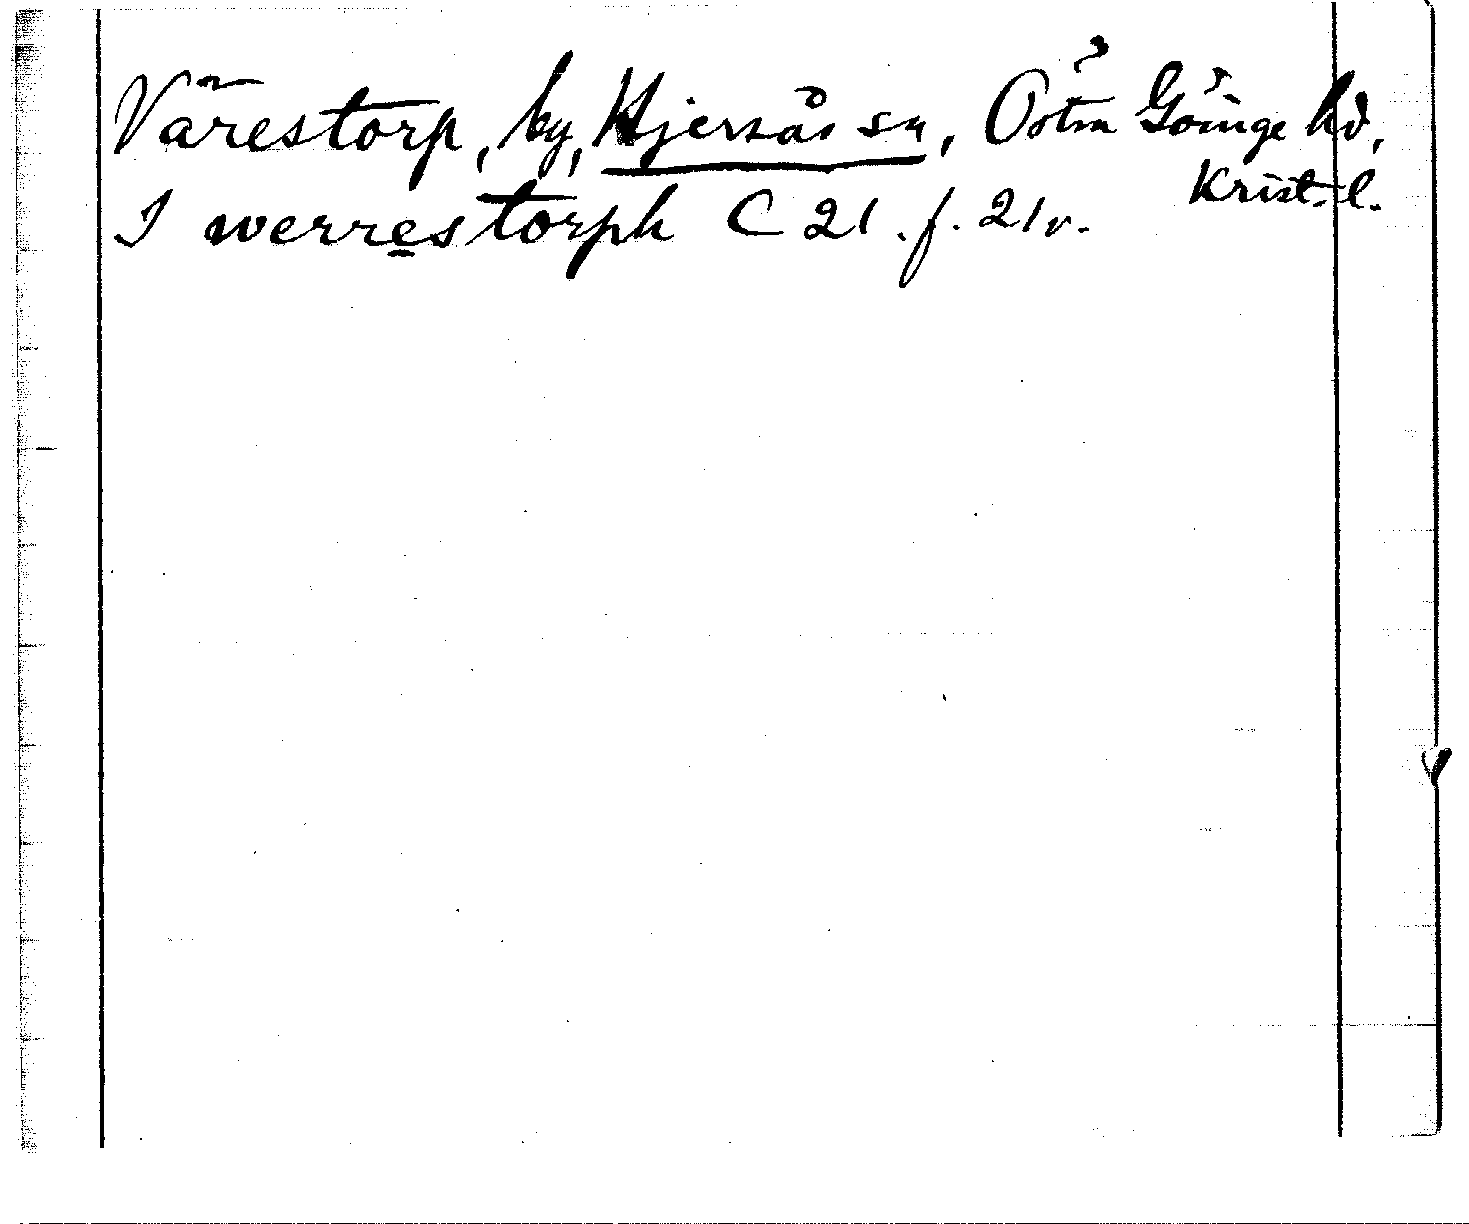 Värestorp, by, Hjersås sn, Östra Göinge hd,
Krist. l.
I werrestorph C 21 . f. 21 v.